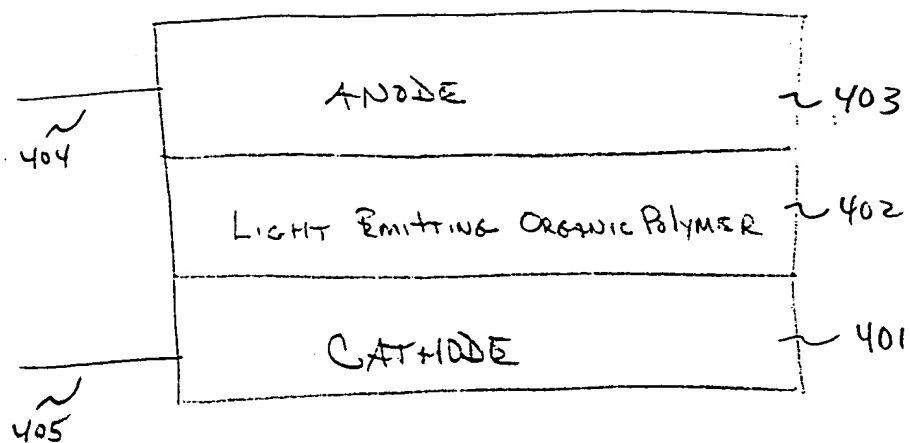 ANODE
403
404
LIGHT EMITTING ORGANIC POLYMER
402
CATHODE
401
405